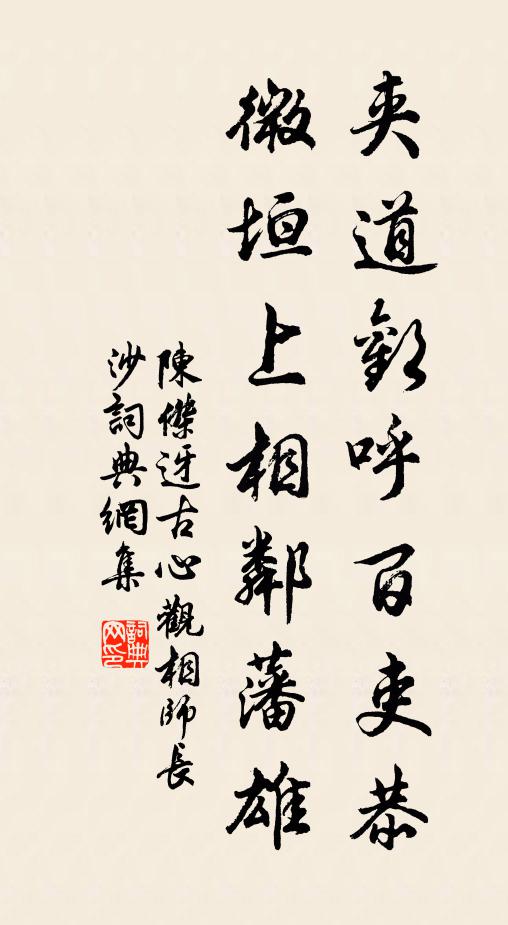 夾道歡呼百吏恭
微垣上相鄰藩雄
陳傑迓古心觀相師長
沙詞典網集
詞典网印